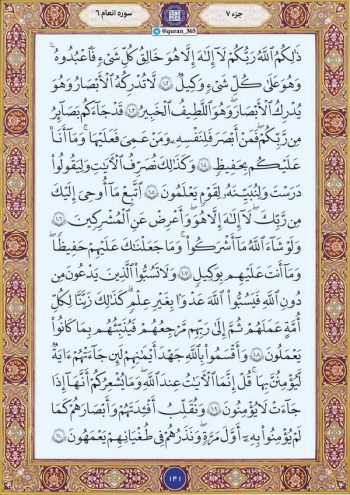 جزء ۷
سوره انعام ۶
@quran_365
ذَٰلِكُمُ اللَّهُ رَبُّكُمْ لَا إِلَٰهَ إِلَّا هُوَ خَالِقُ كُلِّ شَيْءٍ فَاعْبُدُوهُ
وَهُوَ عَلَىٰ كُلِّ شَيْءٍ وَكِيلٌ ۝١٠٢ لَا تُدْرِكُهُ الْأَبْصَارُ وَهُوَ
يُدْرِكُ الْأَبْصَارَ وَهُوَ اللَّطِيفُ الْخَبِيرُ ۝١٠٣ قَدْ جَاءَكُمْ بَصَائِرُ
مِنْ رَبِّكُمْ فَمَنْ أَبْصَرَ فَلِنَفْسِهِ وَمَنْ عَمِيَ فَعَلَيْهَا وَمَا أَنَا
عَلَيْكُمْ بِحَفِيظٍ ۝١٠٤ وَكَذَٰلِكَ نُصَرِّفُ الْآيَاتِ وَلِيَقُولُوا
دَرَسْتَ وَلِنُبَيِّنَهُ لِقَوْمٍ يَعْلَمُونَ ۝١٠٥ اتَّبِعْ مَا أُوحِيَ إِلَيْكَ
مِنْ رَبِّكَ لَا إِلَٰهَ إِلَّا هُوَ وَأَعْرِضْ عَنِ الْمُشْرِكِينَ ۝١٠٦
وَلَوْ شَاءَ اللَّهُ مَا أَشْرَكُوا وَمَا جَعَلْنَاكَ عَلَيْهِمْ حَفِيظًا
وَمَا أَنْتَ عَلَيْهِمْ بِوَكِيلٍ ۝١٠٧ وَلَا تَسُبُّوا الَّذِينَ يَدْعُونَ مِنْ
دُونِ اللَّهِ فَيَسُبُّوا اللَّهَ عَدْوًا بِغَيْرِ عِلْمٍ كَذَٰلِكَ زَيَّنَّا لِكُلِّ
أُمَّةٍ عَمَلَهُمْ ثُمَّ إِلَىٰ رَبِّهِمْ مَرْجِعُهُمْ فَيُنَبِّئُهُمْ بِمَا كَانُوا
يَعْمَلُونَ ۝١٠٨ وَأَقْسَمُوا بِاللَّهِ جَهْدَ أَيْمَانِهِمْ لَئِنْ جَاءَتْهُمْ آيَةٌ
لَيُؤْمِنُنَّ بِهَا قُلْ إِنَّمَا الْآيَاتُ عِنْدَ اللَّهِ وَمَا يُشْعِرُكُمْ أَنَّهَا إِذَا
جَاءَتْ لَا يُؤْمِنُونَ ۝١٠٩ وَنُقَلِّبُ أَفْئِدَتَهُمْ وَأَبْصَارَهُمْ كَمَا
لَمْ يُؤْمِنُوا بِهِ أَوَّلَ مَرَّةٍ وَنَذَرُهُمْ فِي طُغْيَانِهِمْ يَعْمَهُونَ ۝١١٠
١٤١